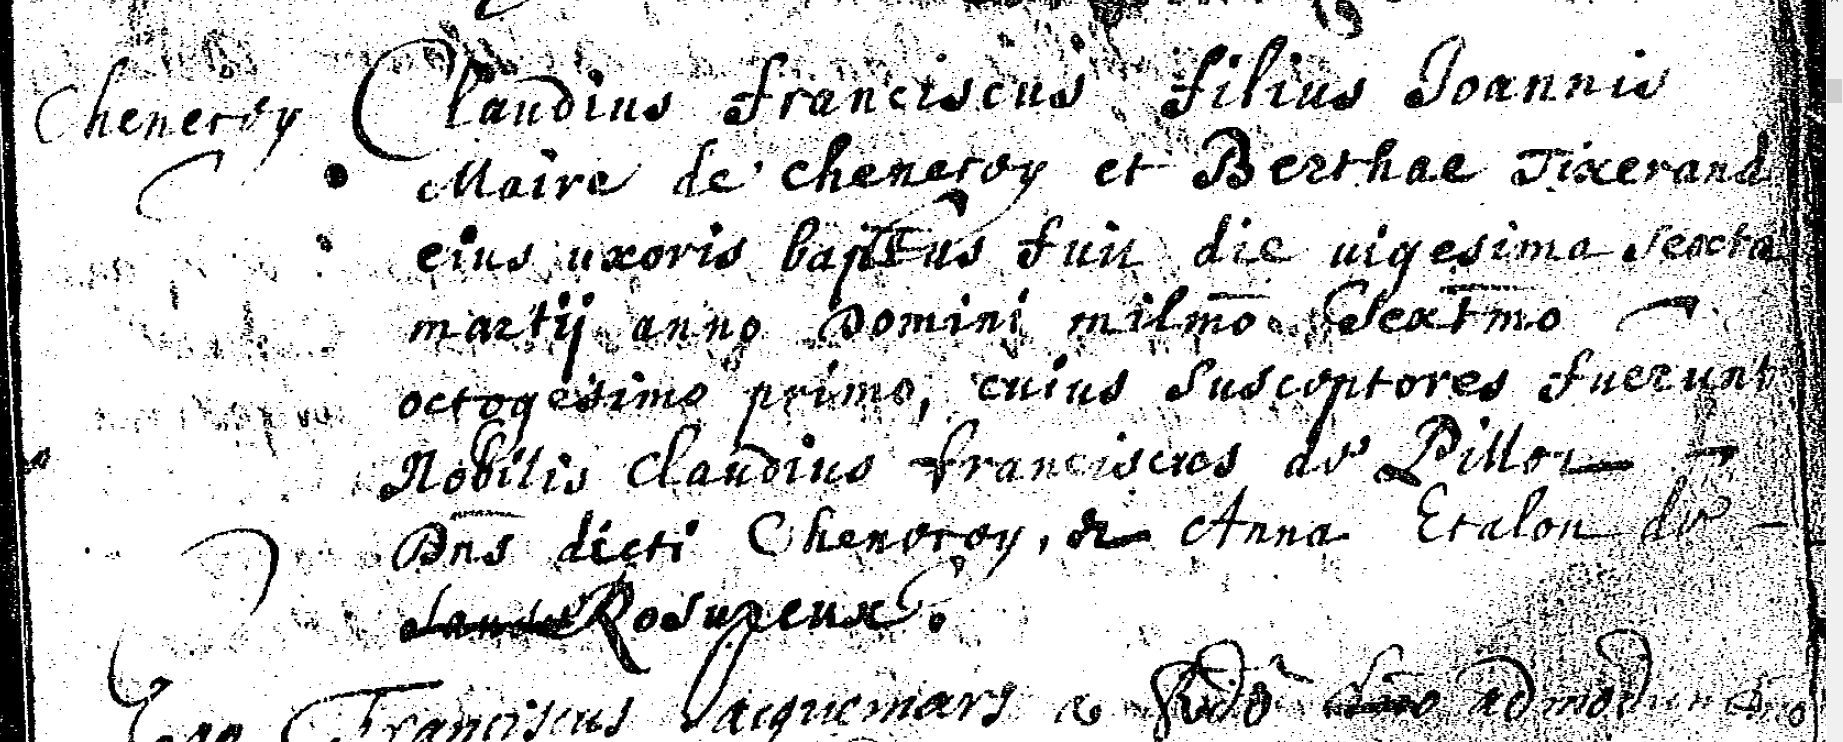 Cheneroy Claudius franciscus filius Joannis
Maire de cheneroy et Berthae Tixerand
eius uxoris baptus fuit die uigesima sexta
martij anno Domini milmo Sextmo
octogesimo primo, cuius susceptores fuerunt
Nobilis Claudius franciscus du Pillot
Dns dicti Cheneroy, & Anna Etalon de
Rosureux.
Ego Franciscus Jacquemars a Rdo dno admodum